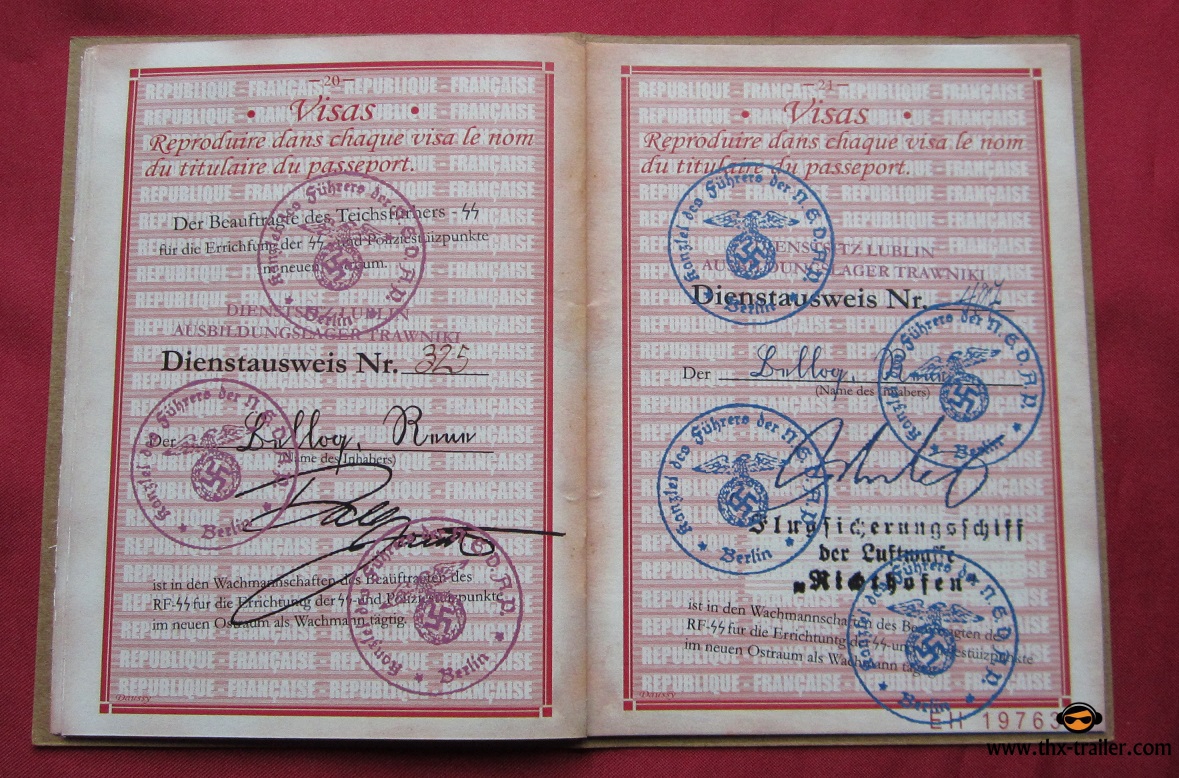 —20—
Visas
Reproduire dans chaque visa le nom
du titulaire du passeport.
Der Beauftragte des Teichsfürhers -SS
für die Errichfung der SS - und Poliziestüizpunkte
im neuen
DIENSTSITZ LUBLIN
AUSBILDUNGSLAGER TRAWNIKI
Dienstausweis Nr. 325
Der Bellog, Rene
(Name des Inhabers)
ist in den Wachmannschaften des Beäuftragten des
RF-SS für die Errichtung der SS-und Poliziestüizpunkte
im neuen Ostraum als Wachmann tägtig.
Kanzlei des Führers der N.S.D.A.P.
Berlin
Kanzlei des Führers der N.S.D.A.P.
Berlin
Kanzlei des Führers der N.S.D.A.P.
Berlin
REPUBLIQUE - FRANÇAISE - REPUBLIQUE - FRANÇAISE
—21—
Visas
Reproduire dans chaque visa le nom
du titulaire du passeport.
DIENSTSITZ LUBLIN
AUSBILDUNGSLAGER TRAWNIKI
Dienstausweis Nr.
Der Bellog, Rene
(Name des Inhabers)
Flugsicherungsschiff
der Luftwaffe
"Richthofen"
ist in den Wachmannschaften des Beauftragten des
RF-SS fur die Errichtung der SS-und Poliziestüizpunkte
im neuen Ostraum als Wachmann
Kanzlei des Führers der N.S.D.A.P.
Berlin
Kanzlei des Führers der N.S.D.A.P.
Berlin
Kanzlei des Führers der N.S.D.A.P.
Berlin
Kanzlei des Führers der N.S.D.A.P.
Berlin
REPUBLIQUE - FRANÇAISE - REPUBLIQUE - FRANÇAISE
EH 19763
www.thx-trailer.com